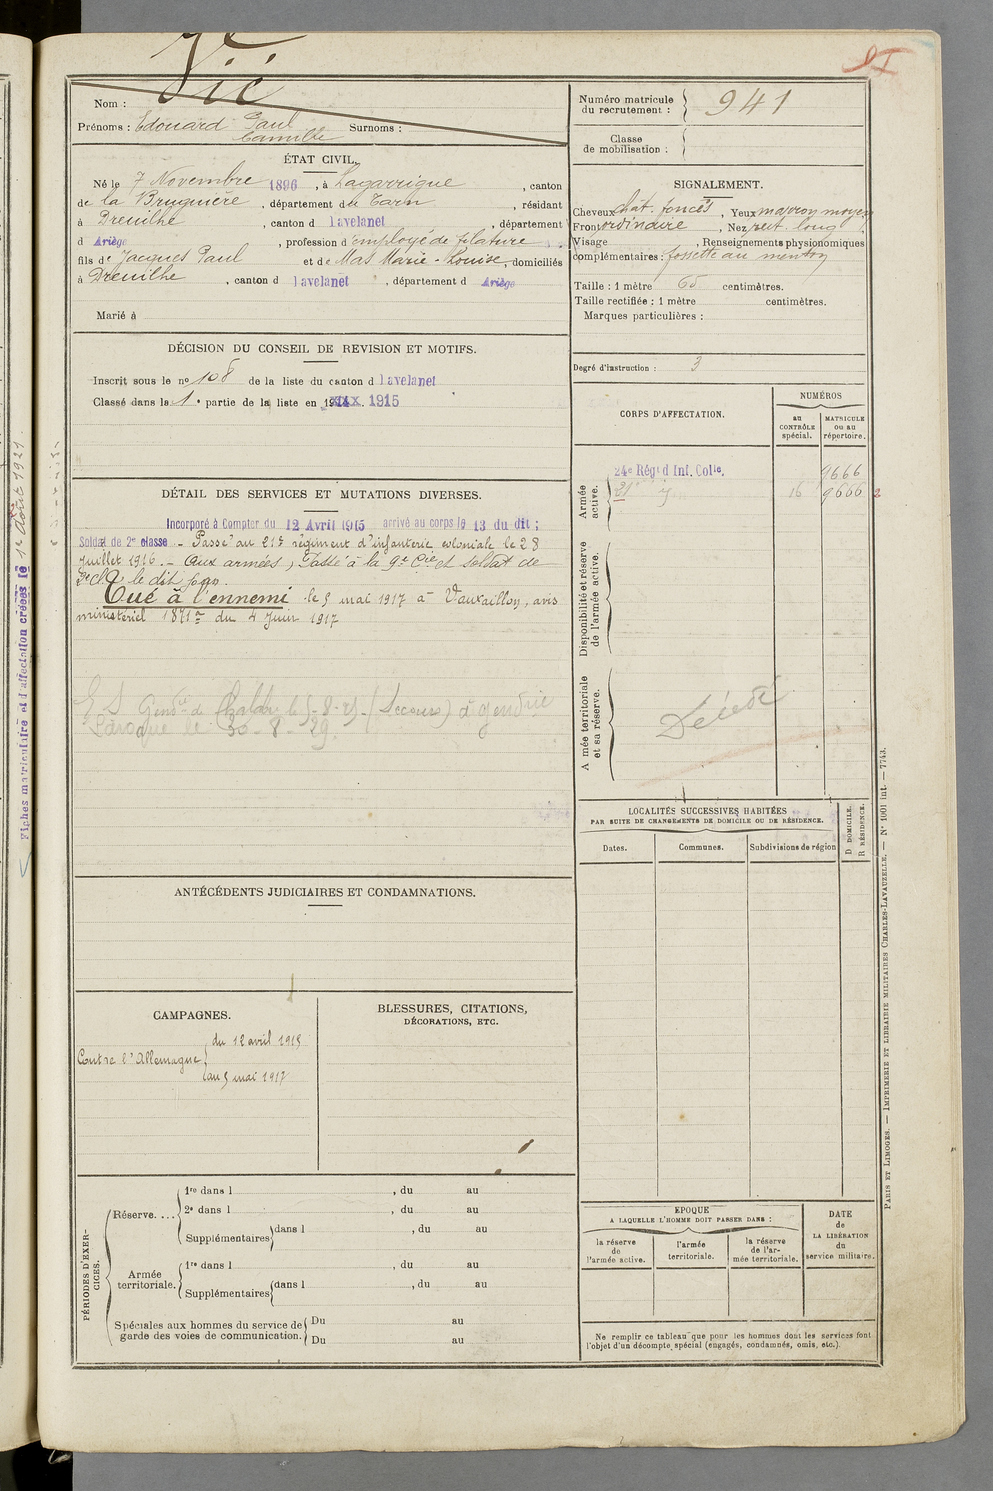 Vié
Nom :
Prénoms : Edouard Paul Surnoms :
Camille
ÉTAT CIVIL.
Né le 7 Novembre 1896, à Lagarrigue, canton
de la Bruguière, département du Tarn, résidant
à Dreuilhe, canton d Lavelanet, département
d Ariège, profession d'employé de filature
fils de Jacques Paul et de Mas Marie-Louise, domiciliés
à Dreuilhe, canton d Lavelanet, département d Ariège
Marié à
DÉCISION DU CONSEIL DE REVISION ET MOTIFS.
Inscrit sous le no 108 de la liste du canton d Lavelanet
Classé dans la 1e partie de la liste en 1915
DÉTAIL DES SERVICES ET MUTATIONS DIVERSES.
Incorporé à Compter du 12 Avril 1915 arrivé au corps le 13 du dit ;
Soldat de 2e classe - Passé au 21e régiment d'infanterie coloniale le 28
juillet 1916. - Aux armées, Passé à la 9e Cie et soldat de
2e Cl. le dit jour.
Tué à l'ennemi le 5 mai 1917 à Vauxaillon, avis
ministériel du 4 Juin 1917
le 30-8-29
ANTÉCÉDENTS JUDICIAIRES ET CONDAMNATIONS.
CAMPAGNES.
Contre l'Allemagne
du 12 avril 1915
au 5 mai 1917
BLESSURES, CITATIONS,
DÉCORATIONS, ETC.
PÉRIODES D'EXER-
CICES.
Réserve....
1re dans l , du au
2e dans l , du au
Supplémentaires dans l , du au
Armée
territoriale.
1re dans l , du au
Supplémentaires dans l , du au
Spéciales aux hommes du service de
garde des voies de communication.
Du au
Du au
Numéro matricule
du recrutement : 941
Classe
de mobilisation :
SIGNALEMENT.
Cheveux chât. foncés, Yeux marron moyen
Front ordinaire, Nez rect. long
Visage , Renseignements physionomiques
complémentaires : fossette au menton
Taille : 1 mètre 65 centimètres.
Taille rectifiée : 1 mètre centimètres.
Marques particulières :
Degré d'instruction : 3
CORPS D'AFFECTATION.
NUMÉROS
au
CONTRÔLE
spécial.
MATRICULE
ou au
répertoire.
Armée
active.
24e Régt d'Inf. Colle. 9666
21e 16 9666
Disponibilité et réserve
de l'armée active.
Armée territoriale
et sa réserve.
Décédé
LOCALITÉS SUCCESSIVES HABITÉES
PAR SUITE DE CHANGEMENTS DE DOMICILE OU DE RÉSIDENCE.
Dates.
Communes.
Subdivisions de région
D DOMICILE.
R RÉSIDENCE.
EPOQUE
A LAQUELLE L'HOMME DOIT PASSER DANS :
la réserve
de
l'armée active.
l'armée
territoriale.
la réserve
de l'ar-
mée territoriale.
DATE
de
LA LIBÉRATION
du
service militaire.
Ne remplir ce tableau que pour les hommes dont les services font
l'objet d'un décompte spécial (engagés, condamnés, omis, etc.).
PARIS ET LIMOGES. — IMPRIMERIE ET LIBRAIRIE MILITAIRES CHARLES-LAVAUZELLE. — No 1001 int. — 7743.
Fiches matriculaire et d'affectation créées le 1er Août 1921